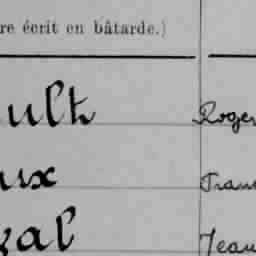 re écrit en bâtarde.)
ult Roger
ux Fran
yal Jean